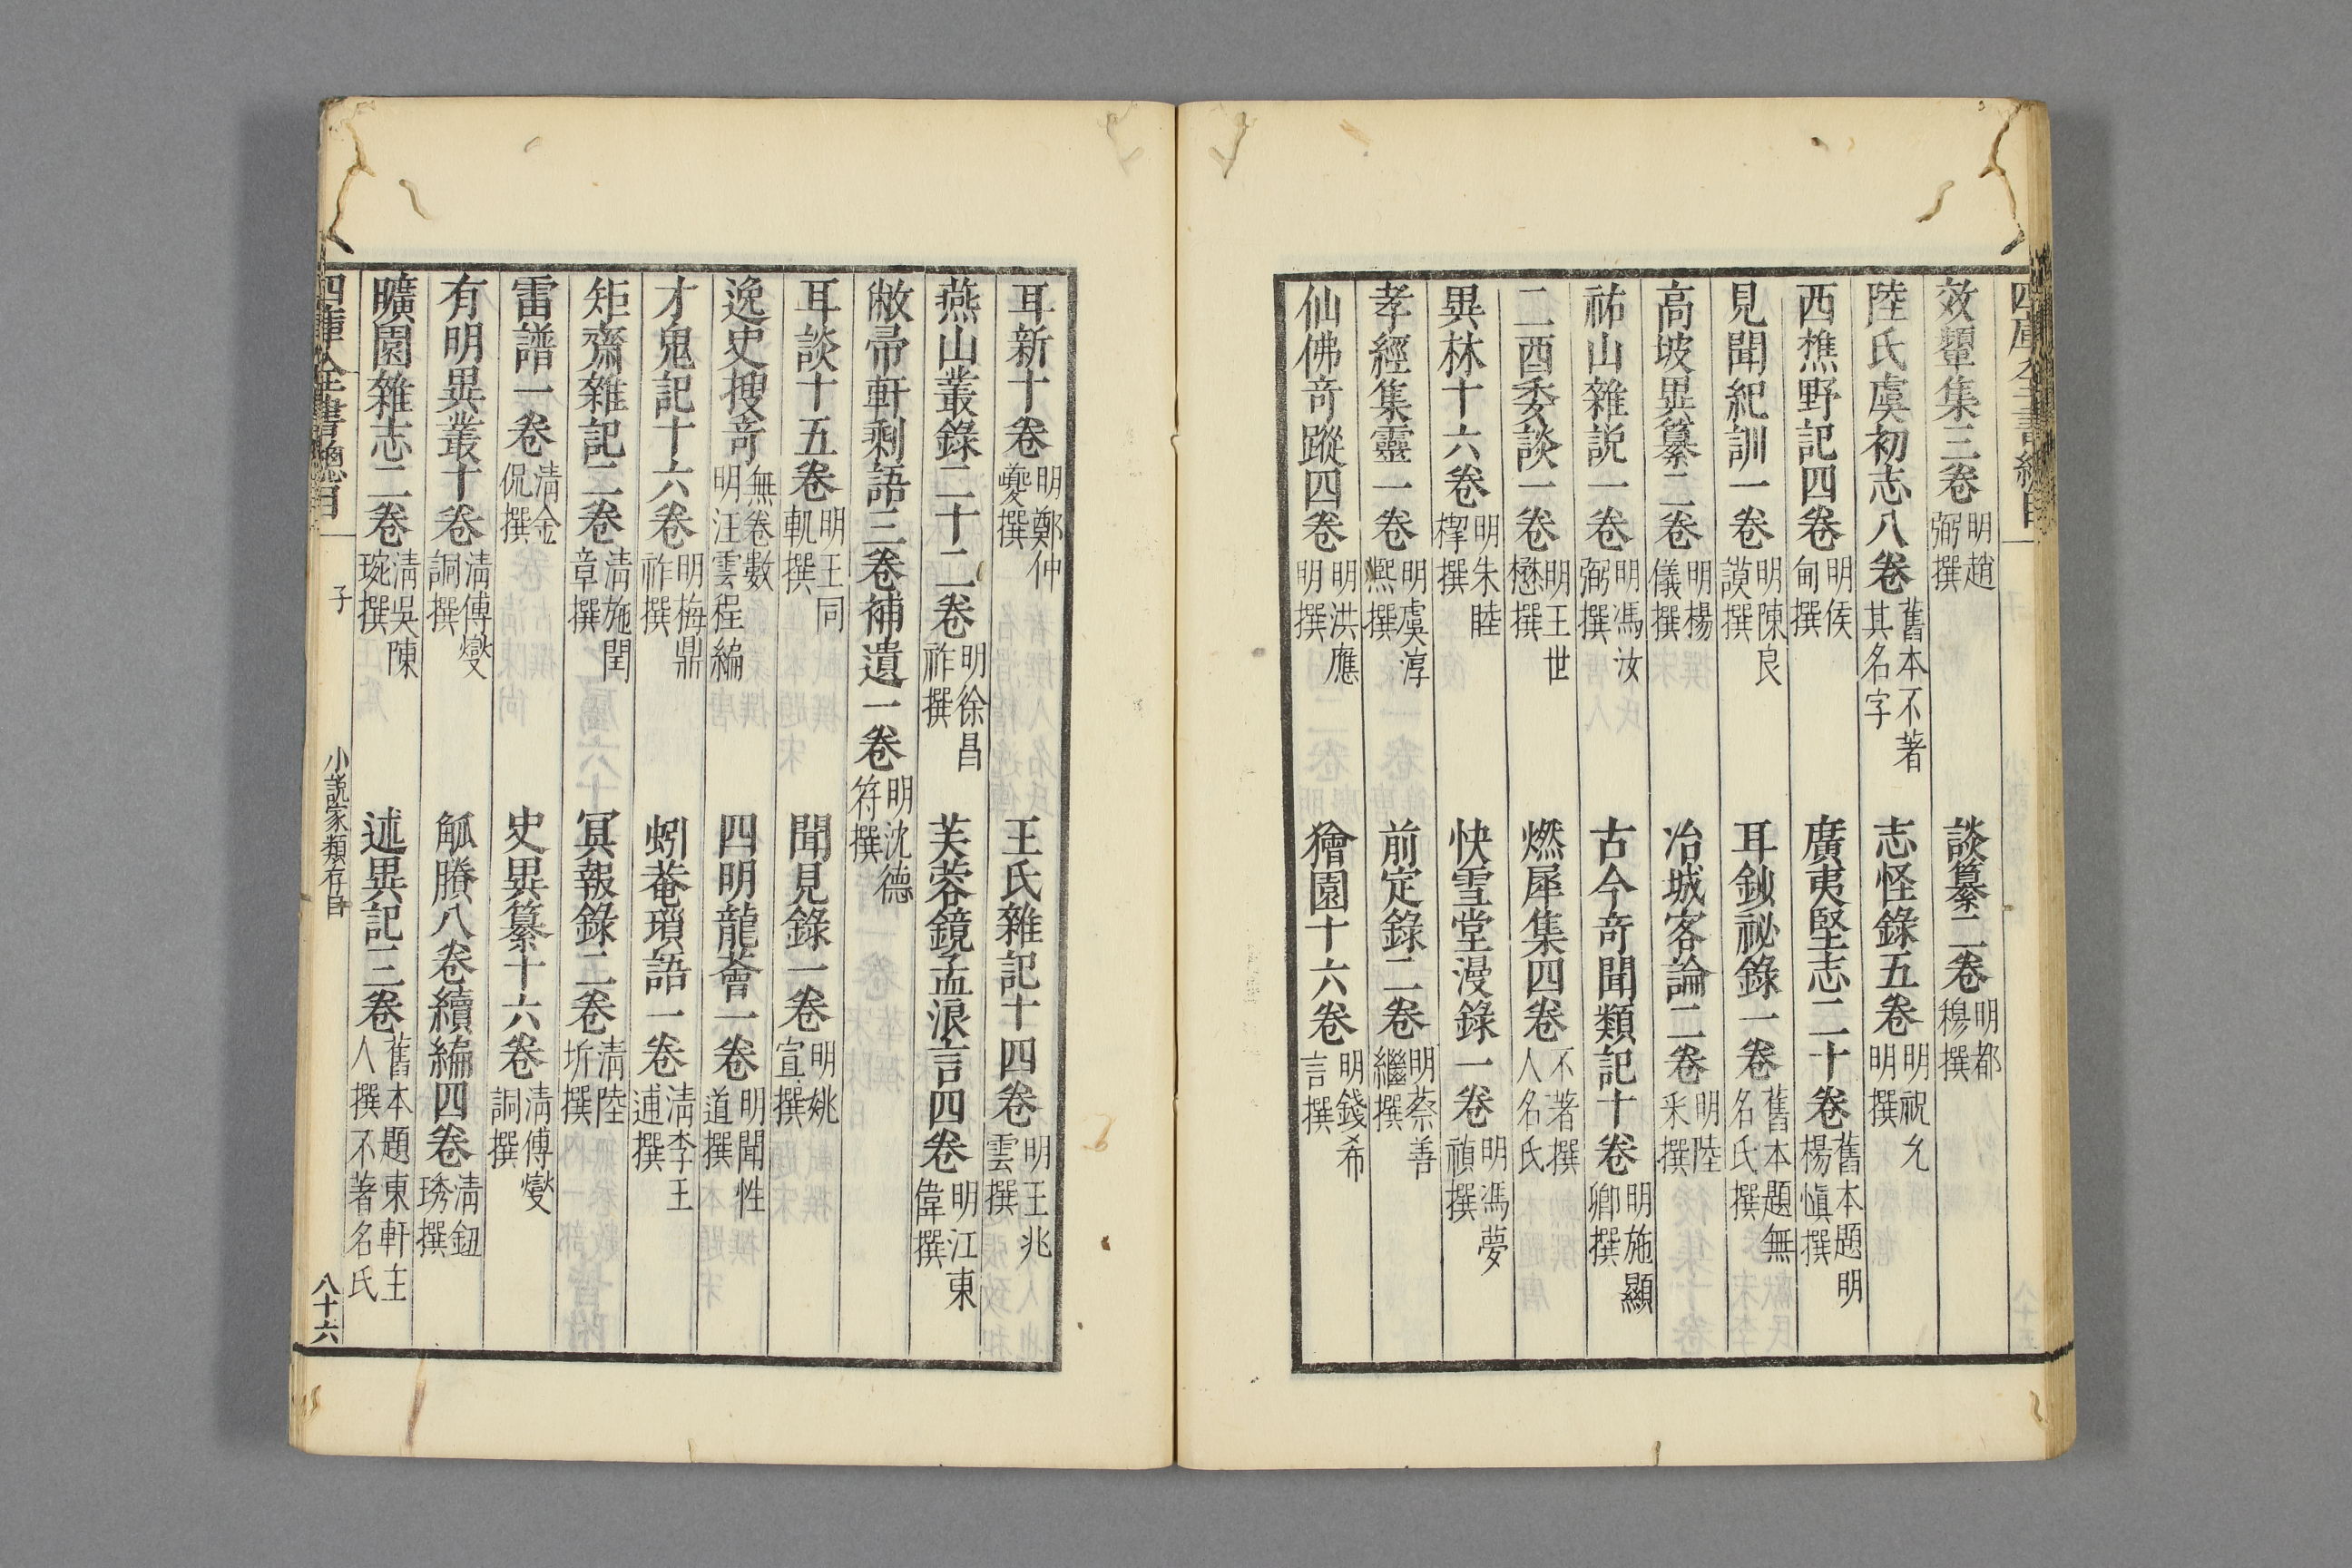 四庫全書總目
效顰集三卷 明趙弼撰 談纂二卷 明都穆撰
陸氏虞初志八卷 舊本不著其名字 志怪錄五卷 明祝允明撰
西樵野記四卷 明侯甸撰 廣夷堅志二十卷 舊本題明楊愼撰
見聞紀訓一卷 明陳良謨撰 耳鈔祕錄一卷 舊本題無名氏撰
高坡異纂二卷 明楊儀撰 冶城客論二卷 明陸釆撰
祐山雜説一卷 明馮汝弼撰 古今竒聞類記十卷 明施顯卿撰
二酉委談一卷 明王世懋撰 燃犀集四卷 不著撰人名氏
異林十六卷 明朱睦㮮撰 快雪堂漫錄一卷 明馮夢禎撰
孝經集靈一卷 明虞淳熙撰 前定錄二卷 明蔡善繼撰
仙佛竒蹤四卷 明洪應明撰 獪園十六卷 明錢希言撰
耳新十卷 明鄭仲夔撰 王氏雜記十四卷 明王兆雲撰
燕山叢錄二十二卷 明徐昌祚撰 芙蓉鏡孟浪言四卷 明江東偉撰
敝帚軒剩語三卷補遺一卷 明沈德符撰
耳談十五卷 明王同軌撰 聞見錄一卷 明姚宣撰
逸史搜竒 無卷數明汪雲程編 四明龍薈一卷 明聞性道撰
才鬼記十六卷 明梅鼎祚撰 蚓菴瑣語一卷 淸李王逋撰
矩齋雜記二卷 淸施閏章撰 冥報錄二卷 淸陸圻撰
雷譜一卷 淸金侃撰 史異纂十六卷 淸傅燮詷撰
有明異叢十卷 淸傅燮詷撰 觚賸八卷續編四卷 淸鈕琇撰
曠園雜志二卷 淸吳陳琬撰 述異記三卷 舊本題東軒主人撰不著名氏
四庫全書總目 子 小説家類存目 八十六